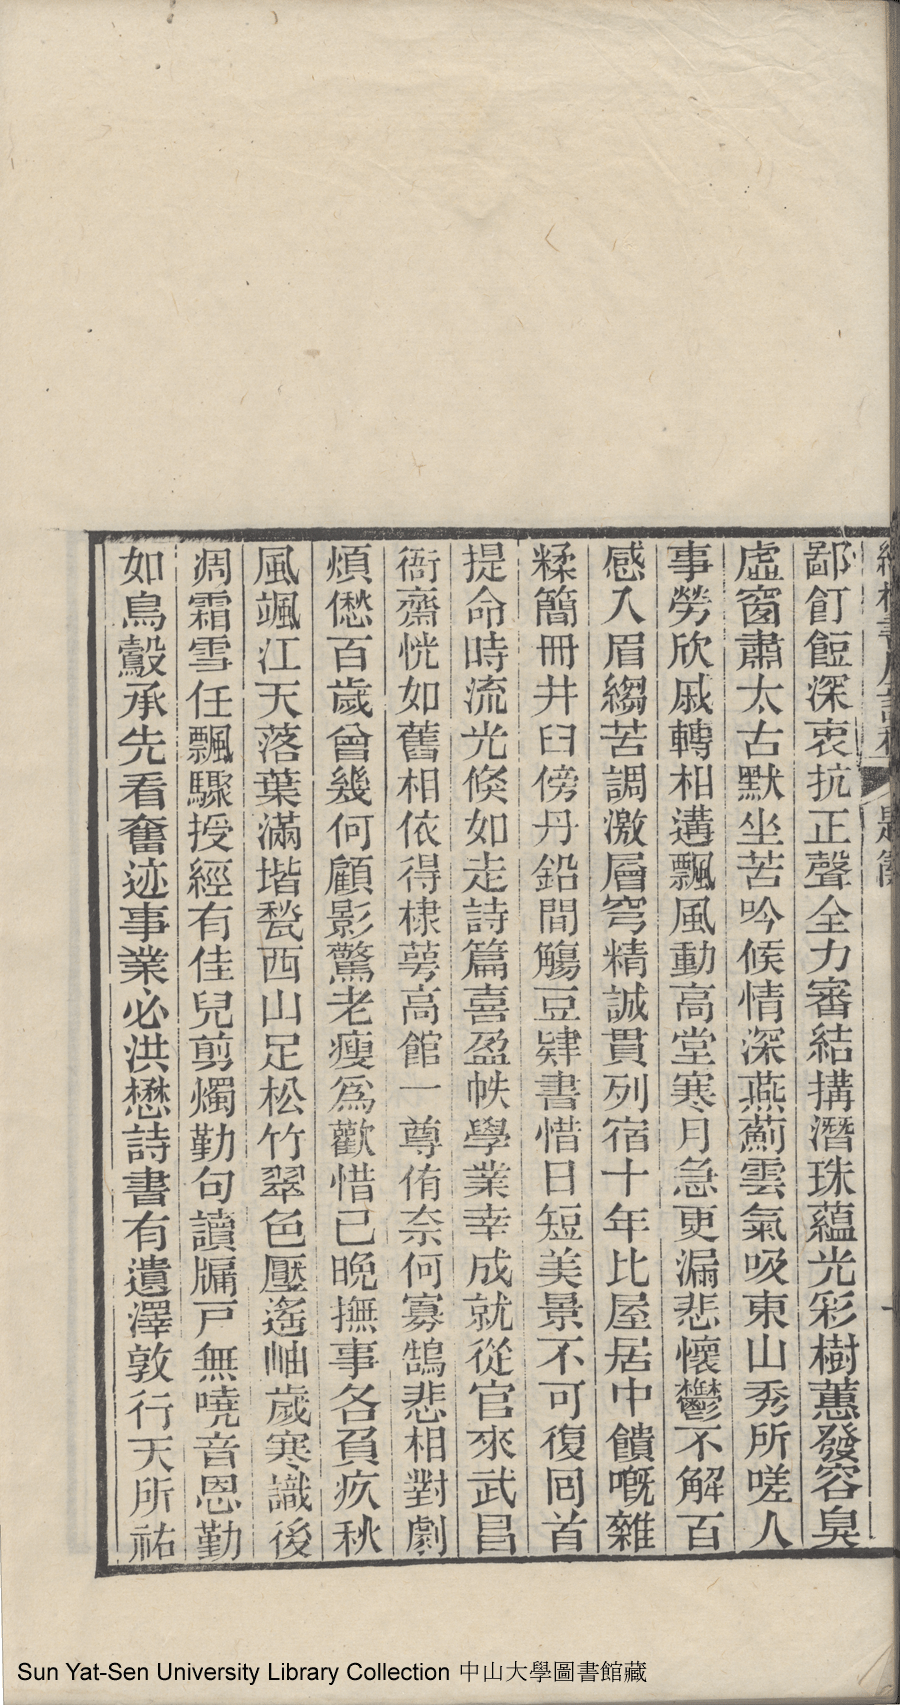 鄙飣餖深衷抗正聲全力審結搆潛珠蘊光彩樹蕙發容臭
虛窗肅太古默坐苦吟候情深燕薊雲氣吸東山秀所嗟人
事勞欣戚轉相遘飄風動高堂寒月急更漏悲懷鬱不解百
感入眉縐苦調激層穹精誠貫列宿十年比屋居中饋嘅雜
糅簡冊井臼傍丹鉛間觴豆肄書惜日短美景不可復回首
提命時流光倏如走詩篇喜盈帙學業幸成就從官來武昌
衙齋恍如舊相依得棣萼高館一尊侑奈何寡鵠悲相對劇
煩僽百歲曾幾何顧影驚老瘦爲歡惜已晚撫事各負疚秋
風颯江天落葉滿堦甃西山足松竹翠色壓遙岫歲寒識後
凋霜雪任飄驟授經有佳兒剪燭勤句讀牖戶無嘵音恩勤
如鳥鷇承先看奮迹事業必洪懋詩書有遺澤敦行天所祐
Sun Yat-Sen University Library Collection 中山大學圖書館藏